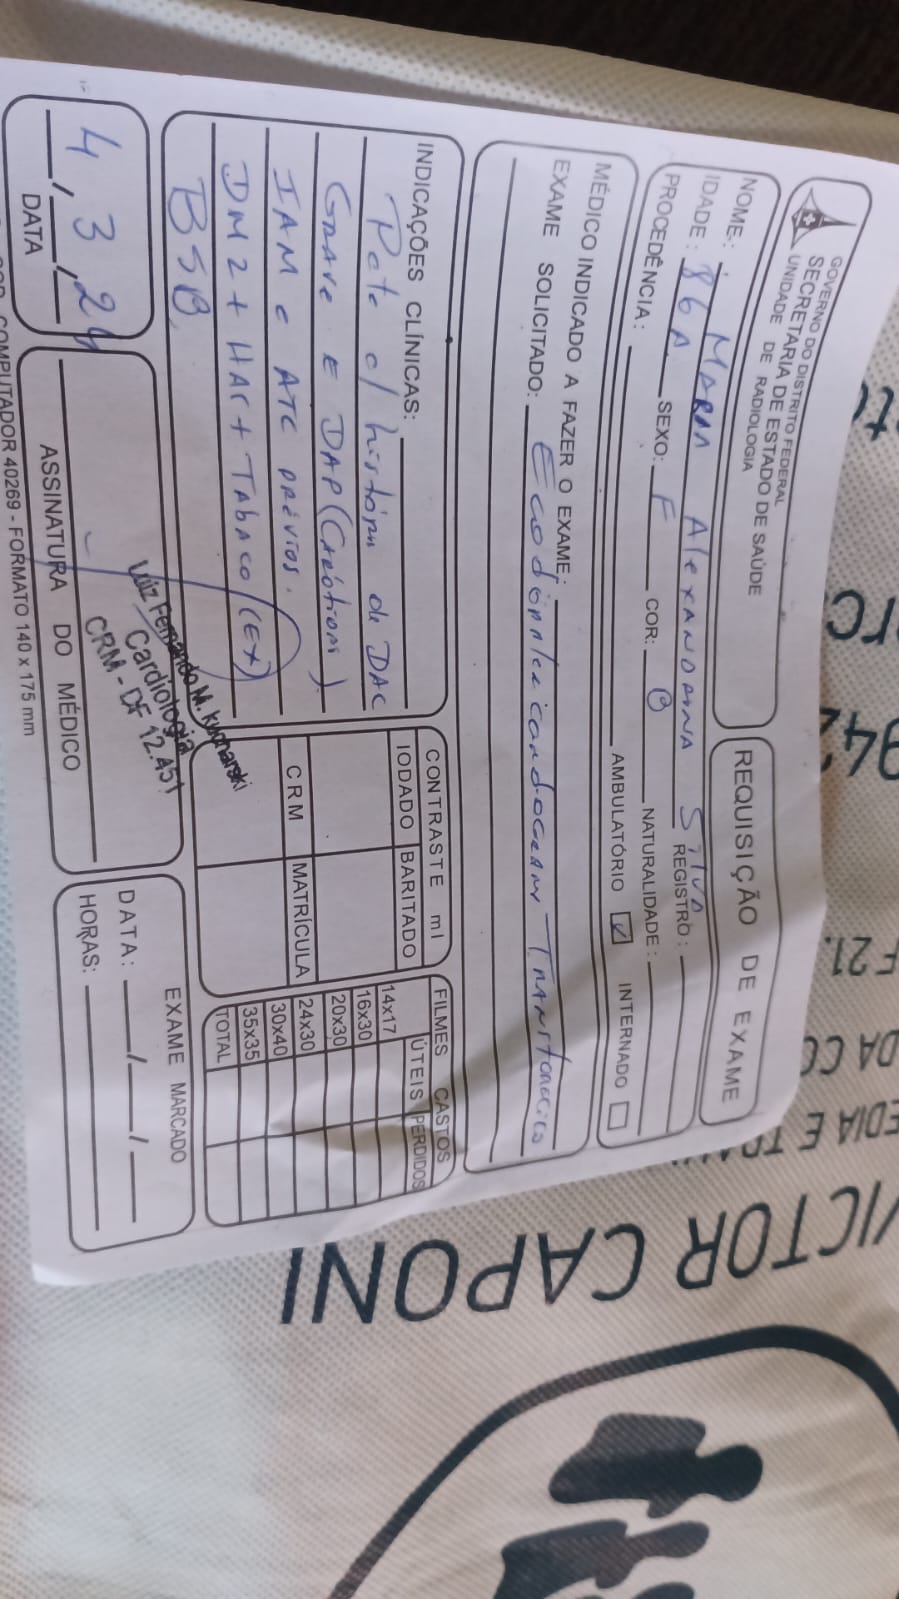 GOVERNO DO DISTRITO FEDERAL
SECRETARIA DE ESTADO DE SAÚDE
UNIDADE DE RADIOLOGIA
REQUISIÇÃO DE EXAME
NOME: Maria Alexandrina Silva
IDADE: 86 A SEXO: F COR: NATURALIDADE: REGISTRO:
PROCEDÊNCIA: AMBULATÓRIO ☑ INTERNADO ☐
MÉDICO INDICADO A FAZER O EXAME:
EXAME SOLICITADO: Ecodopplercardiograma Transtorácico
INDICAÇÕES CLÍNICAS:
Pcte c/ história de DAC
Grave e DAP (Carótidas).
IAM e ATC prévios.
DM2 + HAr + Tabaco (EX)
BSB
CONTRASTE ml
IODADO BARITADO
CRM MATRÍCULA
FILMES CASTOS
ÚTEIS PERDIDOS
14x17
16x30
20x30
24x30
30x40
35x35
TOTAL
4, 3, 24
DATA
Luiz Fernando M.
Cardiologia
CRM - DF 12.451
ASSINATURA DO MÉDICO
EXAME MARCADO
DATA: / /
HORAS:
COMPUTADOR 40269 - FORMATO 140 x 175 mm
VICTOR CAPONI